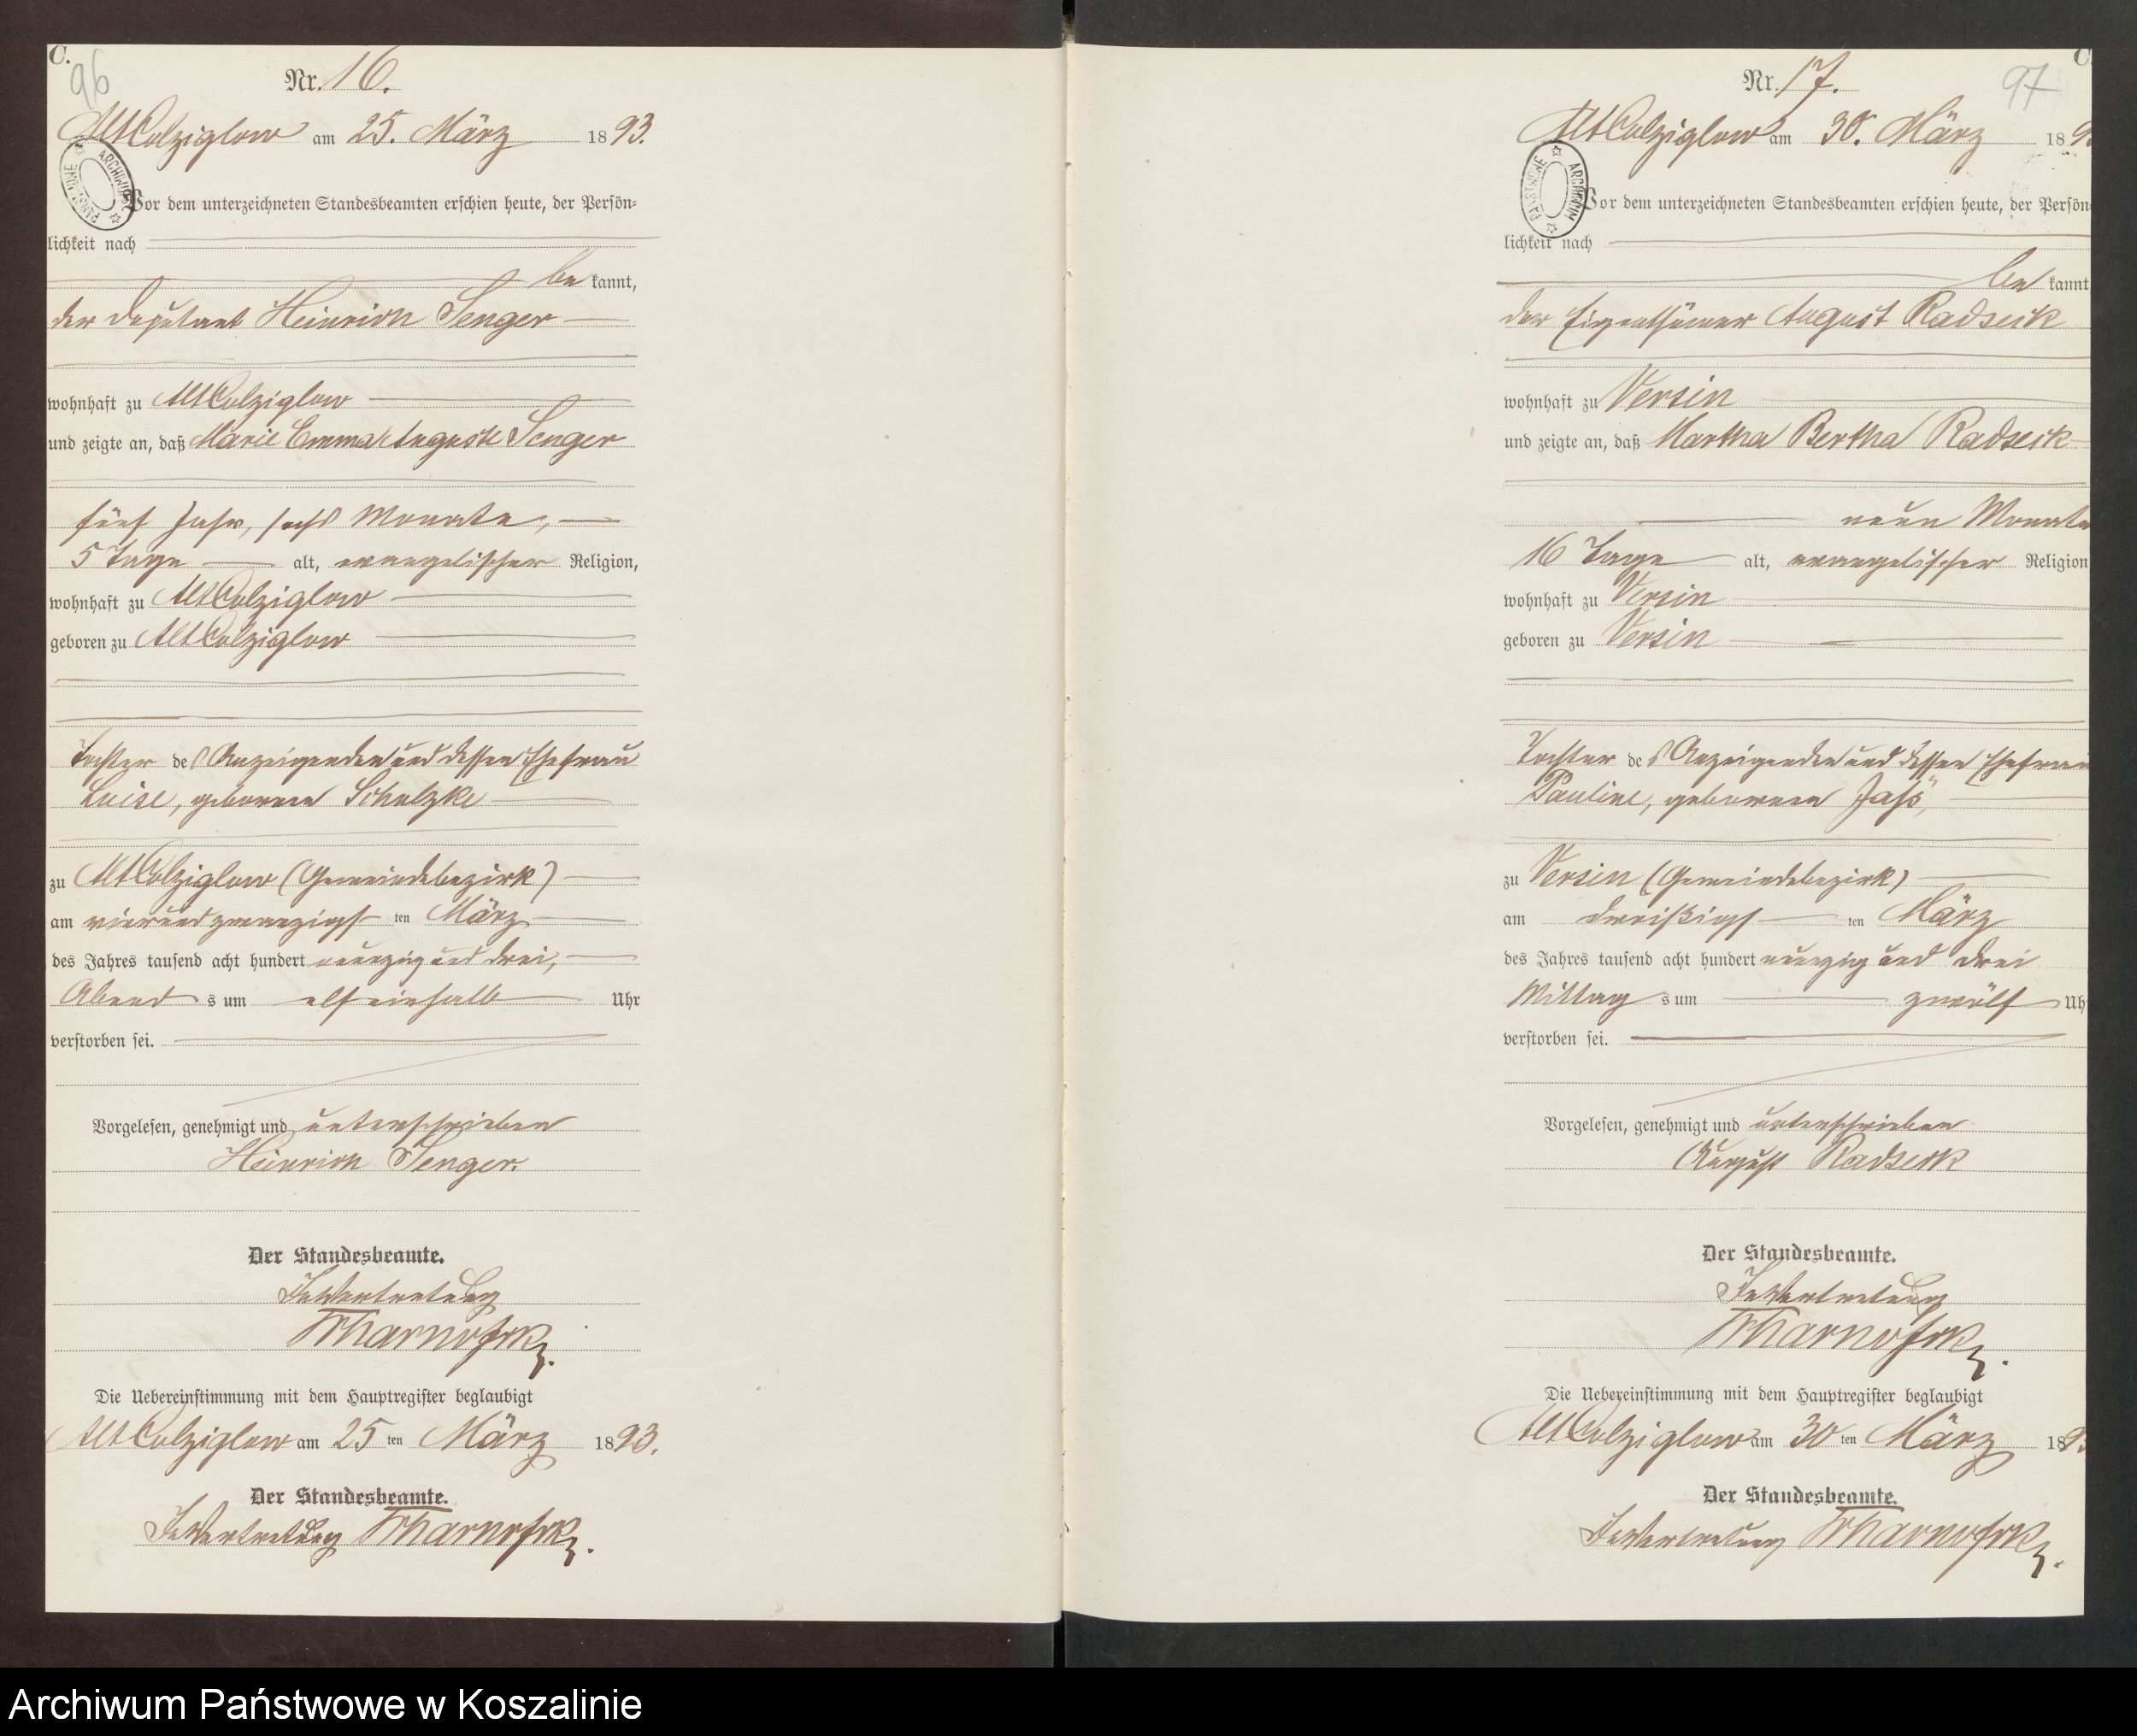 C.
96
Nr. 16.
Alt Colziglow am 25. März 1893.
Vor dem unterzeichneten Standesbeamten erschien heute, der Persön-
lichkeit nach
bekannt,
der Deputant Heinrich Senger
wohnhaft zu Alt Colziglow
und zeigte an, daß Marie Emma Auguste Senger
fünf Jahr, sechs Monate,
5 Tage alt, evangelischer Religion,
wohnhaft zu Alt Colziglow
geboren zu Alt Colziglow
Tochter des Anzeigenden und dessen Ehefrau
Luise, geborenen Schulzke
zu Alt Colziglow (Gemeindebezirk)
am vierundzwanzigsten März
des Jahres tausend acht hundert neunzig und drei,
Abends um elf einhalb Uhr
verstorben sei.
Vorgelesen, genehmigt und unterschrieben
Heinrich Senger.
Der Standesbeamte.
In Vertretung
Die Uebereinstimmung mit dem Hauptregister beglaubigt
Alt Colziglow am 25ten März 1893.
Der Standesbeamte.
In Vertretung
C
97
Nr. 17.
Alt Colziglow am 30. März 189
ARCHIWUM PAŃSTWOWE
Vor dem unterzeichneten Standesbeamten erschien heute, der Persön-
lichkeit nach
bekannt
der Eigenthümer August Radseck
wohnhaft zu Versin
und zeigte an, daß Martha Bertha Radseck
neun Monate
16 Tage alt, evangelischer Religion
wohnhaft zu Versin
geboren zu Versin
Tochter des Anzeigenden und dessen Ehefrau
Pauline, geborenen Jaß,
zu Versin (Gemeindebezirk)
am dreißigsten März
des Jahres tausend acht hundert neunzig und drei
Mittags um zwölf Uh
verstorben sei.
Vorgelesen, genehmigt und unterschrieben
August Radseck
Der Standesbeamte.
In Vertretung
Die Uebereinstimmung mit dem Hauptregister beglaubigt
Alt Colziglow am 30ten März 189
Der Standesbeamte.
In Vertretung
Archiwum Państwowe w Koszalinie